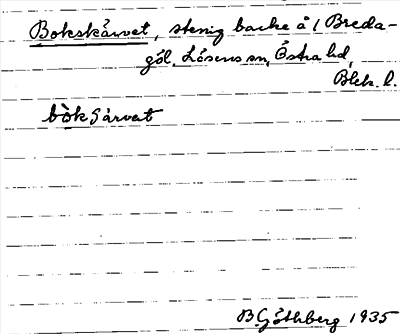 Bokskårvet, stenig backe å 1 Breda-
göl, Lösens sn, Östra hd,
Blek. l.
bòkSårvet
B Göthberg 1935